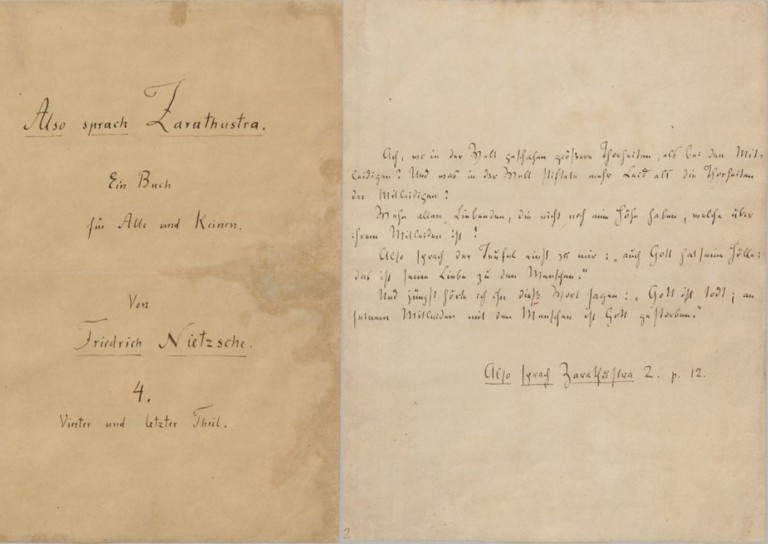 Also sprach Zarathustra.
Ein Buch
für Alle und Keinen.
Von
Friedrich Nietzsche.
4.
Vierter und letzter Theil.
Ach, wo in der Welt geschahen größere Thorheiten, als bei den Mit-
leidigen? Und was in der Welt stiftete mehr Leid als die Thorheiten
der Mitleidigen?
Wehe allen Liebenden, die nicht noch eine Höhe haben, welche über
ihrem Mitleiden ist!
Also sprach der Teufel einst zu mir: „auch Gott hat seine Hölle:
das ist seine Liebe zu den Menschen."
Und jüngst hörte ich ihn dieß Wort sagen: „Gott ist todt; an
seinem Mitleiden mit den Menschen ist Gott gestorben."
Also sprach Zarathustra 2. p. 12.
2